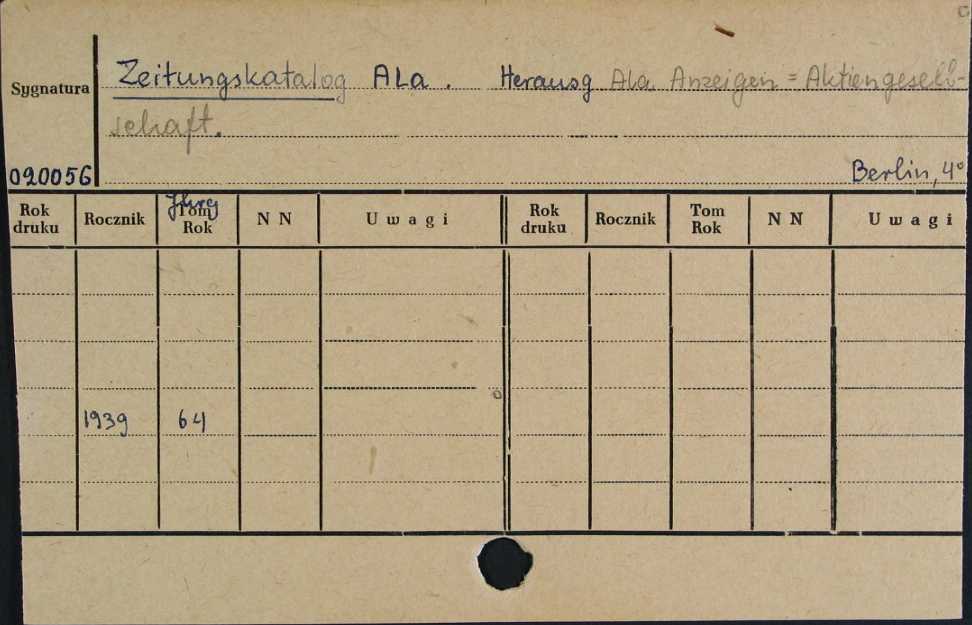 Zeitungskatalog Ala. Herausg Ala Anzeigen = Aktiengesell-
Sygnatura
schaft.
020056
Berlin, 4°
Jhrg
Rok druku Rocznik Tom Rok N N Uwagi Rok druku Rocznik Tom Rok N N Uwagi
1939 64